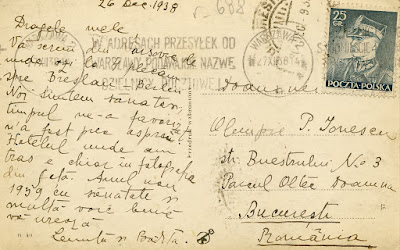 26 Dec. 1938
688
Dragele mele
Vă scriu
W ADRESACH PRZESYŁEK DO
WARSZAWY PODAWAĆ NAZWĘ
DZIELNICY POCZTOWEJ
WARSZAWA
25 GR.
POCZTA POLSKA
spre Breslau Berlin
Noi suntem sănătoși
timpul ne-a favorizat
n'a fost prea aspru
Hotelul unde am
tras e chiar în fotografia
din față. Anul nou
1939 cu sănătate și
multă voie bună
vă urează
Lenuța și
Doamnei
Olimpia P. Ionescu
str. No 3
Parcul Oltec Doamna
București
România